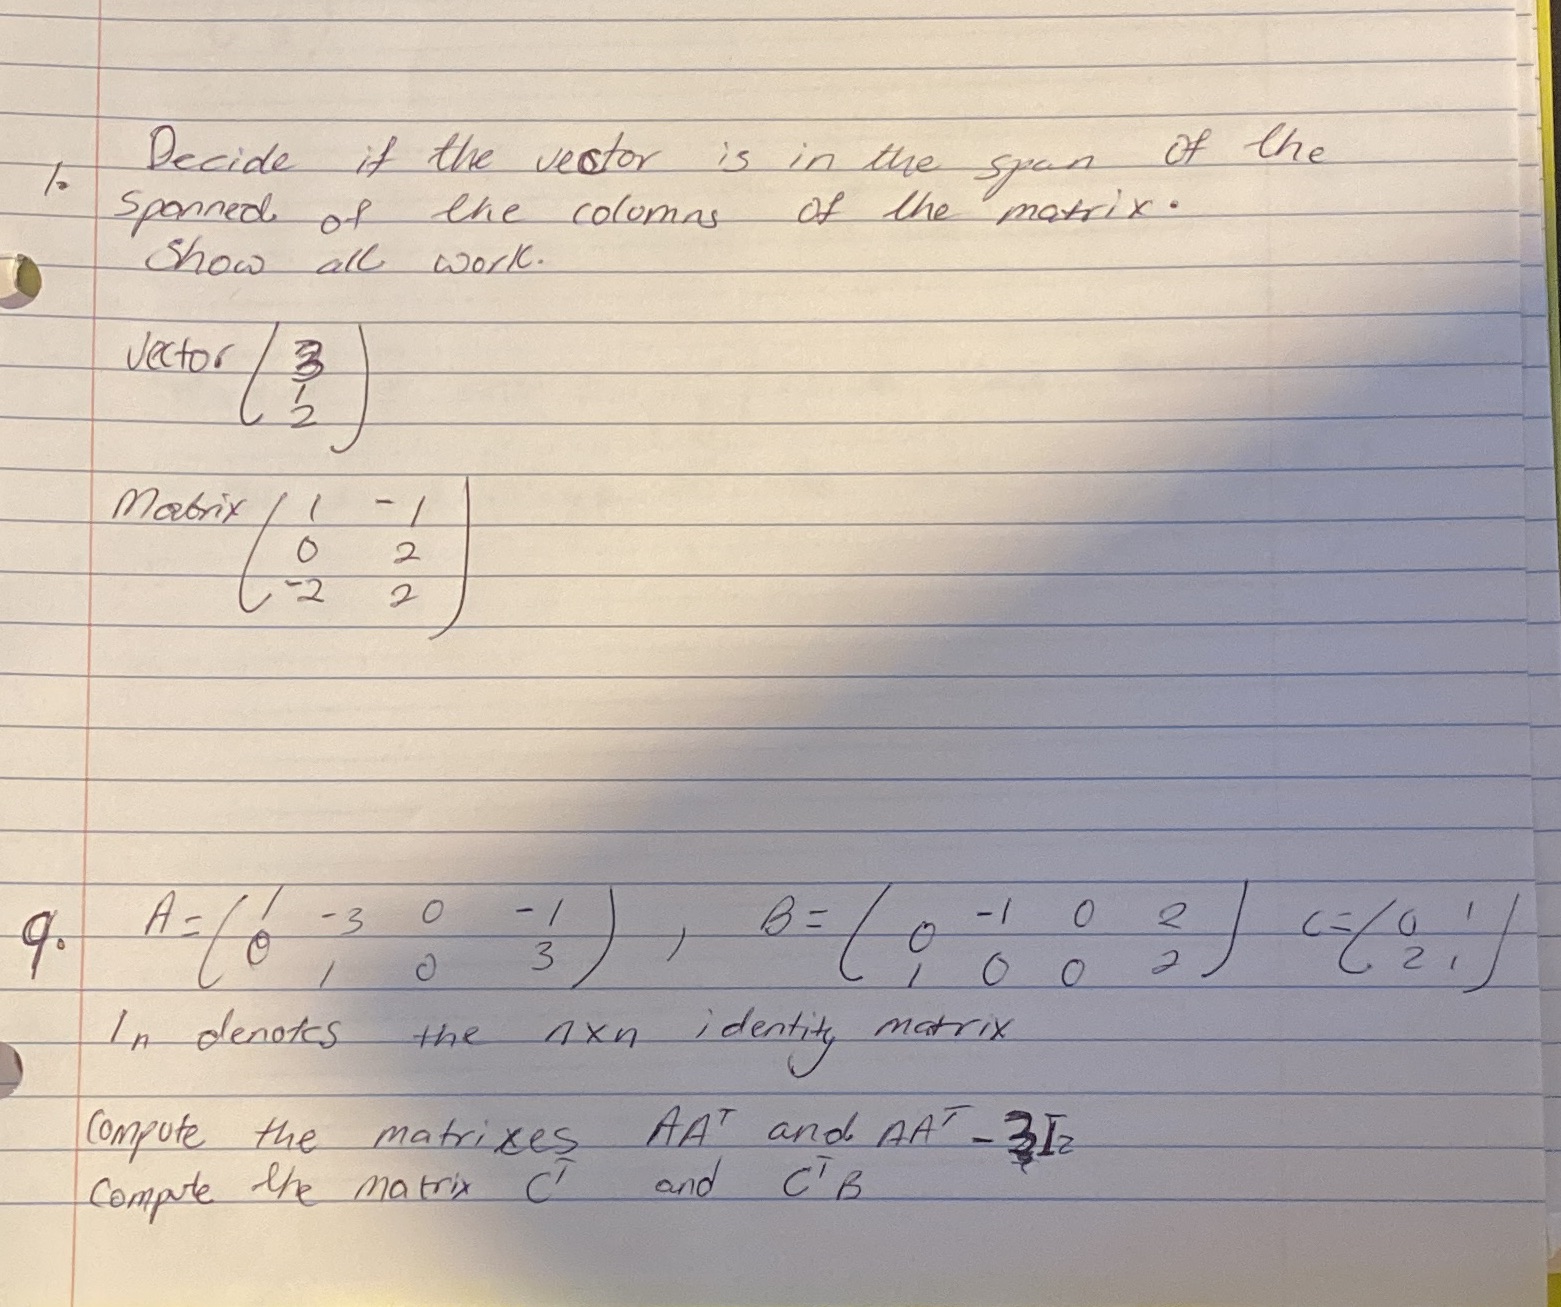 1. Decide if the vector is in the span of the
spanned of the columns of the matrix.
Show all work.
Vector ( 3
1
2 )
Matrix ( 1 -1
0 2
-2 2 )
9. A = ( 1 -3 0 -1 ) , B = ( 0 -1 0 2 ) C = ( 0 1 )
( 0 1 0 3 ) ( 1 0 0 2 ) ( 2 1 )
In denotes the nxn identity matrix
Compute the matrixes AAᵀ and AAᵀ - 3I₂
Compute the matrix Cᵀ and CᵀB